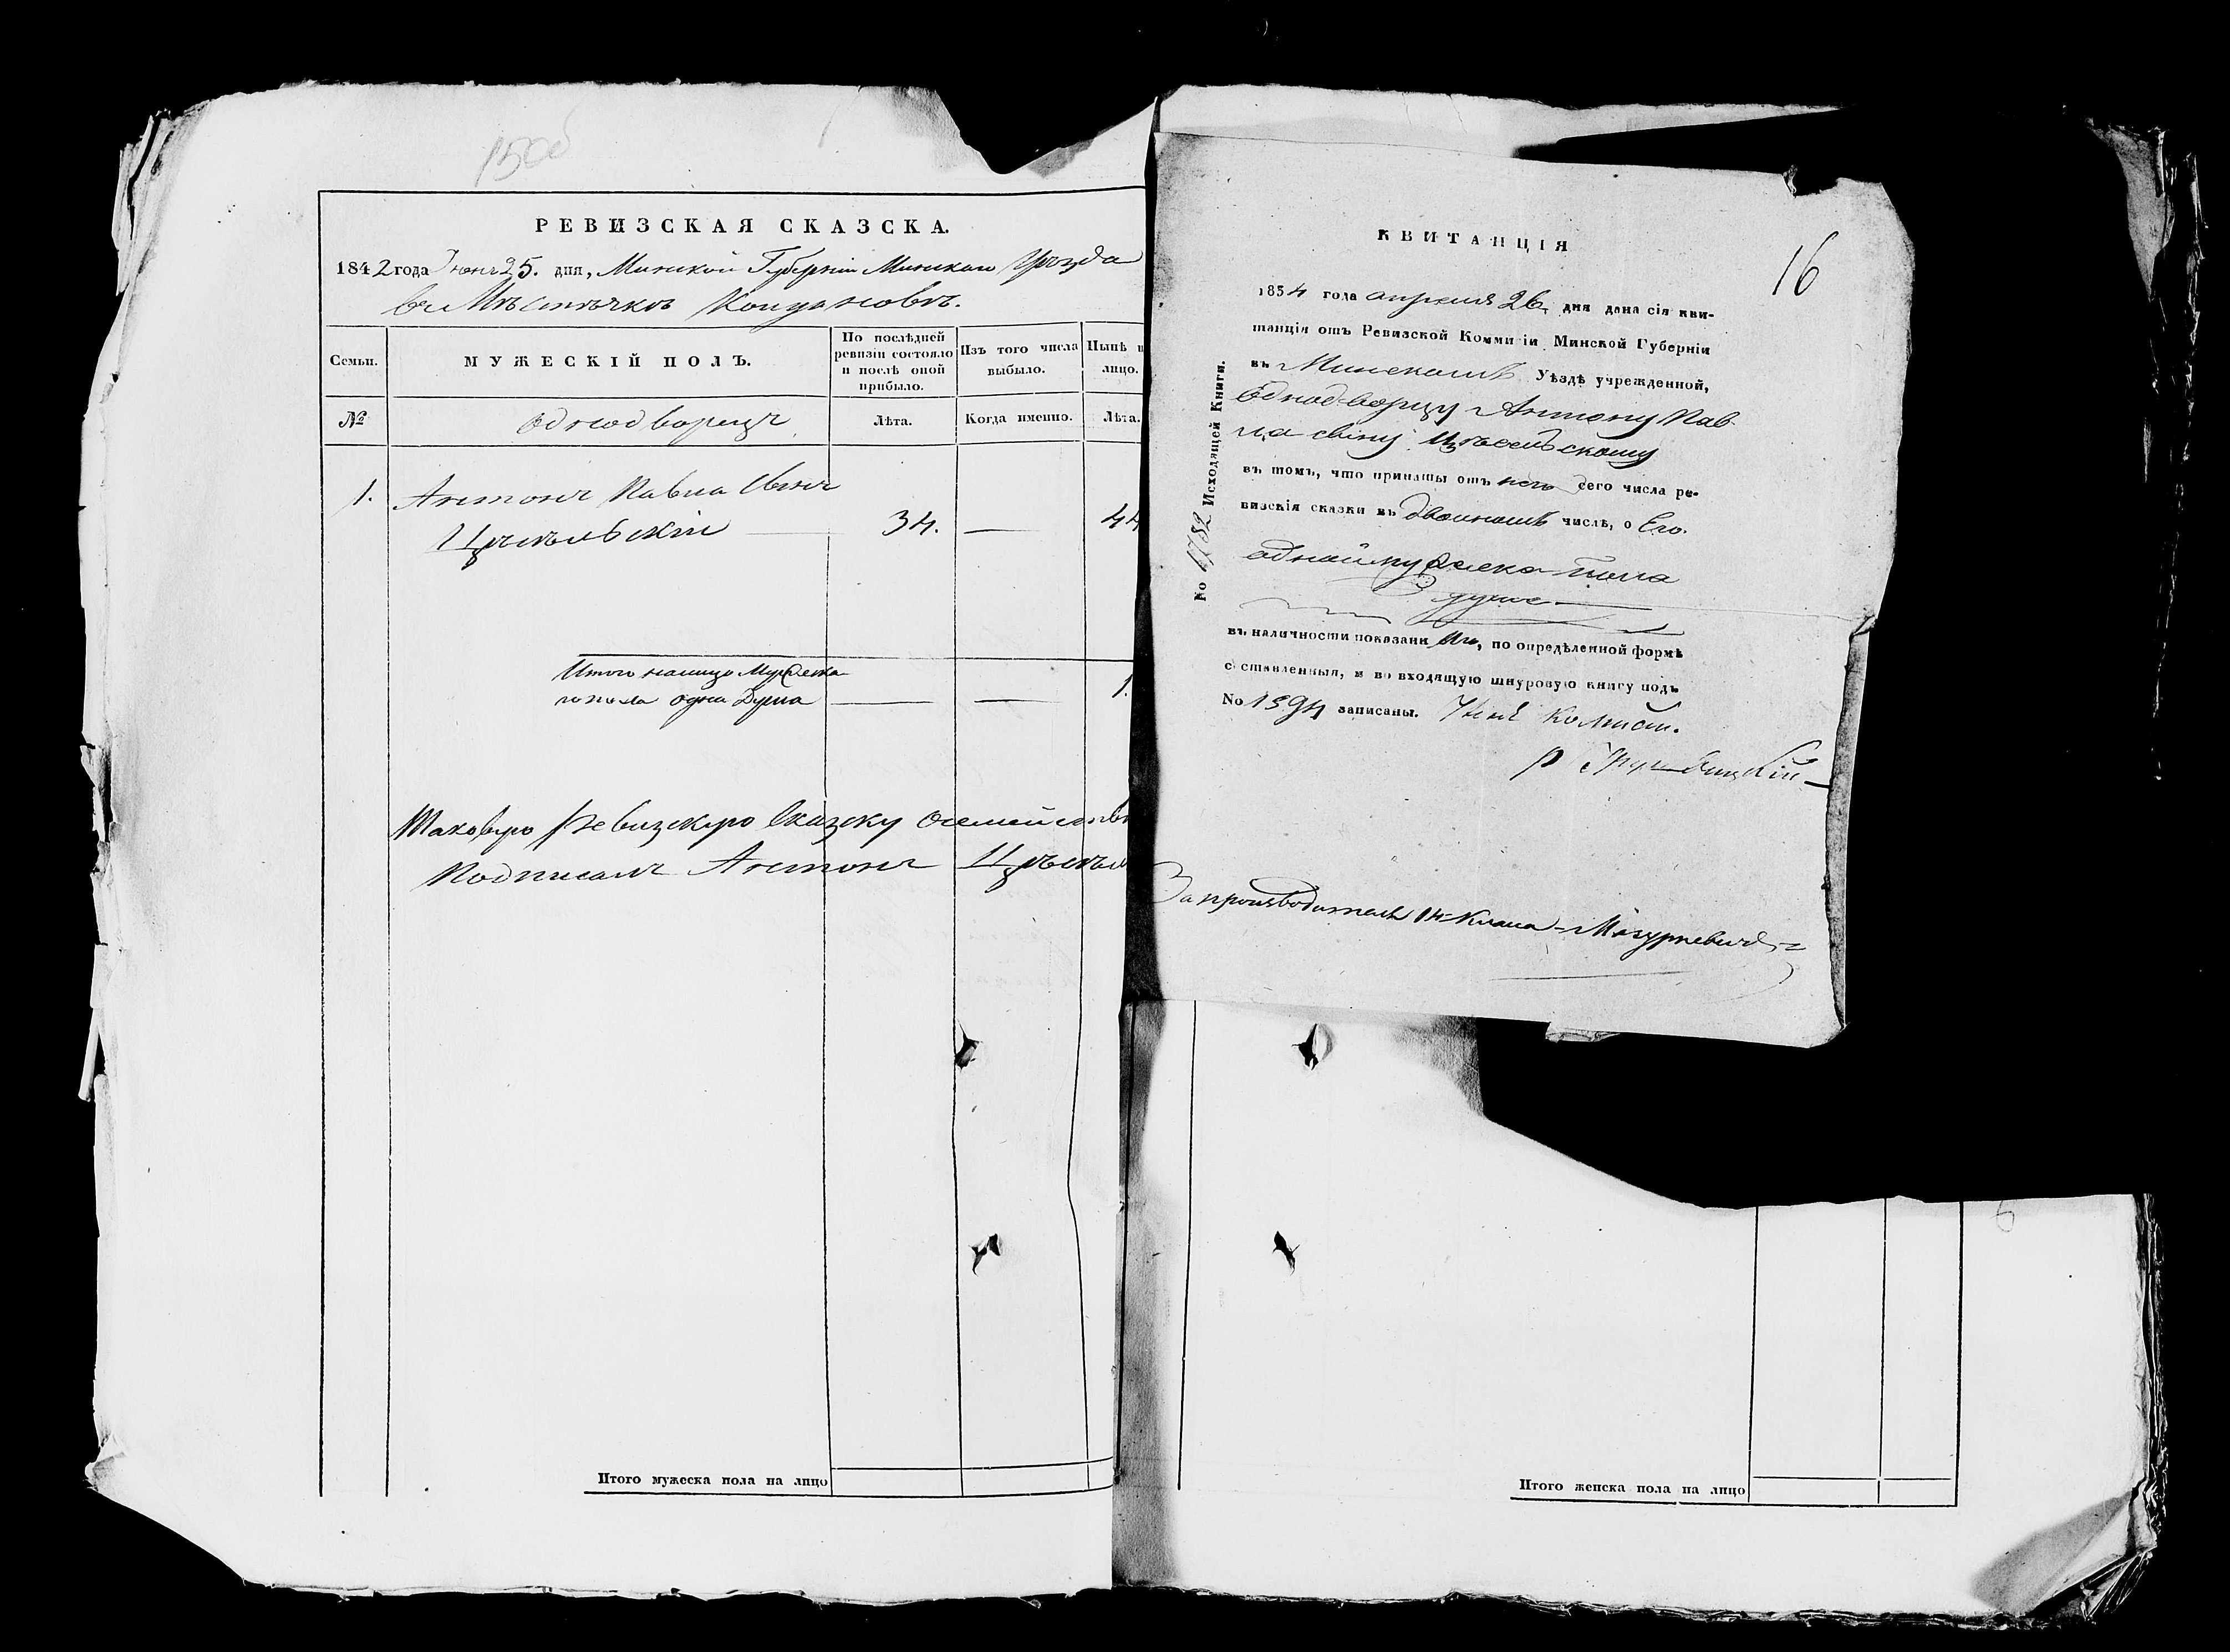 15об
РЕВИЗСКАЯ СКАЗСКА.
1842 года Іюня 25. дня, Минской Губерніи Минскаго Уѣзда
въ Мѣстѣчкѣ Койдановѣ.
Семьи.
МУЖЕСКІЙ ПОЛЪ.
По послѣдней ревизіи состояло и послѣ оной прибыло.
Изъ того числа выбыло.
Нынѣ н лицо.
№
Однодворецъ
Лѣта.
Когда именно.
Лѣта.
1. Антонъ Павла Сынъ
34. — 44
Итого налицо Мужеска
го пола одна Душа — — 1.
Таковую Ревизскую Сказку осемейств
Подписалъ Антонъ
Итого мужеска пола на лицо
16
КВИТАНЦІЯ
1834 года апреля 26 дня дана сія кви-
танція отъ Ревизской Коммисіи Минской Губерніи
въ Минскомъ Уѣздѣ учрежденной,
Однодворцу Антону Пав
ла сыну
въ томъ, что приняты отъ него сего числа ре-
визскія сказки въ двойномъ числѣ, о Его.
одной мужеска пола
душе
въ наличности показани по опредѣленной формѣ
составленныя, и во входящую шнуровую книгу подъ
No 1594 записаны.
No 1752 Исходящей Книги.
За производителя 14 Класа Мазуркевичъ
Итого женска пола на лицо